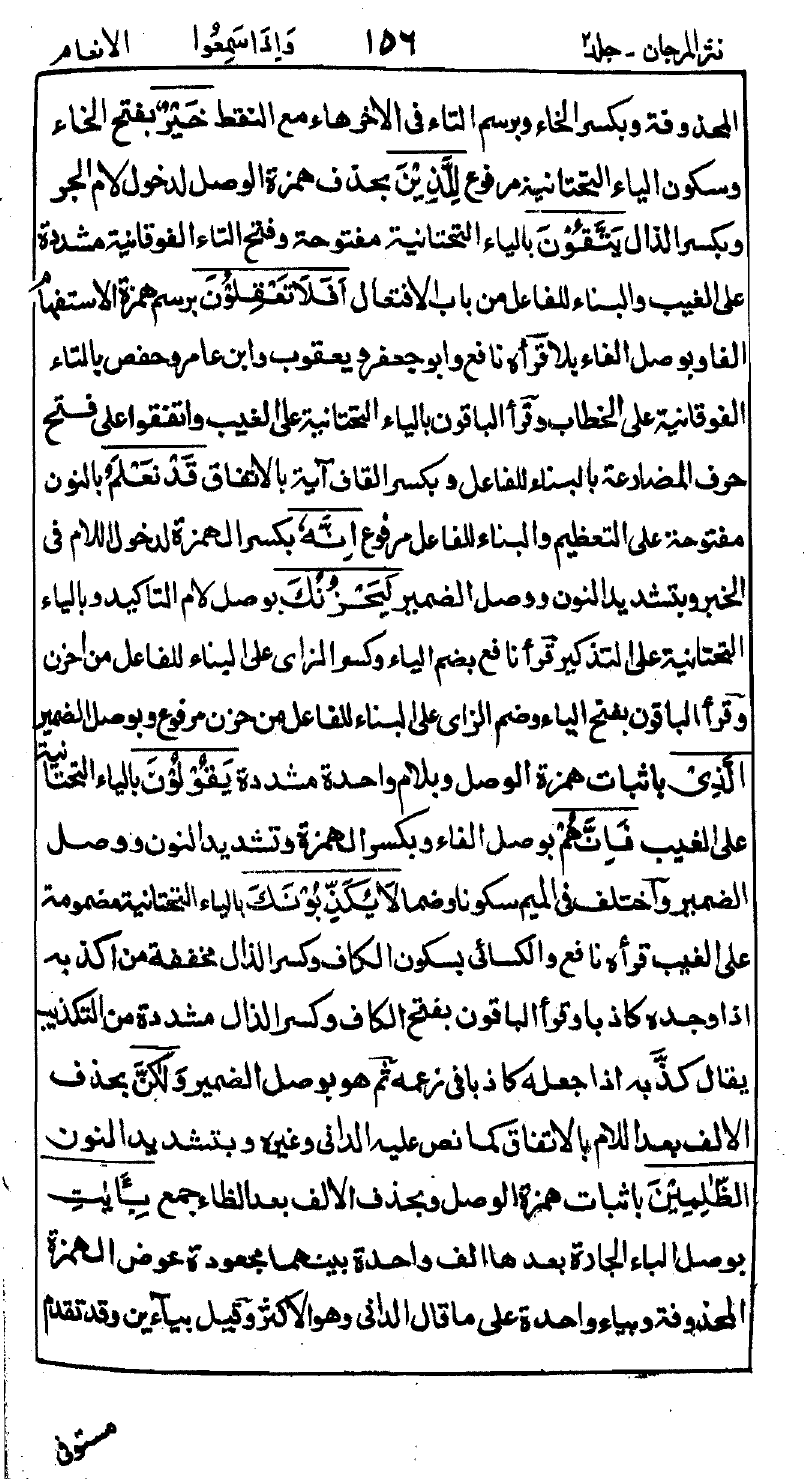 نثر المرجان - جلد ٢ ١٥٦ وَإِذَا سَمِعُوا الانعام
المحذوفة وبكسر الخاء وبرسم التاء فى الآخر هاء مع النقط خَيْرٌ بفتح الخاء
وسكون الياء التحتانية مرفوع لِلَّذِيْنَ بحذف همزة الوصل لدخول لام الجر
وبكسر الذال يَتَّقُوْنَ بالياء التحتانية مفتوحة وفتح التاء الفوقانية مشددة
على الغيب والبناء للفاعل من باب الافتعال اَفَلَا تَعْقِلُوْنَ برسم همزة الاستفهام
الفا وبوصل الفاء بلا قرأه نافع وابوجعفر ويعقوب وابن عامر وحفص بالتاء
الفوقانية على الخطاب وقرأ الباقون بالياء التحتانية على الغيب واتفقوا على فتح
حرف المضارعة بالبناء للفاعل وبكسر القاف آية بالاتفاق قَدْ نَعْلَمُ بالنون
مفتوحة على التعظيم والبناء للفاعل مرفوع اِنَّهٗ بكسر الهمزة لدخول اللام فى
الخبر وبتشديد النون ووصل الضمير لَيَحْزُنُكَ بوصل لام التاكيد وبالياء
التحتانية على التذكير قرأ نافع بضم الياء وكسر الزاى على البناء للفاعل من احزن
وقرأ الباقون بفتح الياء وضم الزاى على البناء للفاعل من حزن مرفوع وبوصل الضمير
الَّذِىْ باثبات همزة الوصل وبلام واحدة مشددة يَقُوْلُوْنَ بالياء التحتانية
على الغيب فَاِنَّهُمْ بوصل الفاء وبكسر الهمزة وتشديد النون ووصل
الضمير واختلف فى الميم سكونا وضما لَا يُكَذِّبُوْنَكَ بالياء التحتانية مضمومة
على الغيب قرأه نافع والكسائى بسكون الكاف وكسر الذال مخففة من اكذبه
اذا وجده كاذبا وقرأ الباقون بفتح الكاف وكسر الذال مشددة من التكذيب
يقال كذَّبه اذا جعله كاذبا فى زعمه ثم هو بوصل الضمير وَلٰكِنَّ بحذف
الالف بعد اللام بالاتفاق كما نص عليه الدانى وغيره وبتشديد النون
الظّٰلِمِيْنَ باثبات همزة الوصل وبحذف الالف بعد الظاء جمع بِـَٔايٰتِ
بوصل الباء الجارة بعدها الف واحدة بينهما مجعودة عوض الهمزة
المحذوفة وبياء واحدة على ما قال الدانى وهو الاكثر وقيل بياءين وقد تقدم
مستوفى